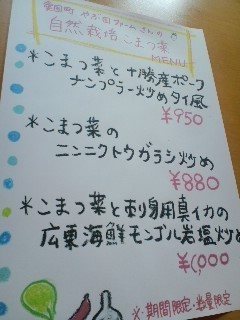 自然栽培こまつ菜
MENU
*こまつ菜と十勝産ポーク
ナンプラー炒めタイ風
¥950
*こまつ菜の
ニンニクトウガラシ炒め
¥880
*こまつ菜と刺身用真イカの
広東海鮮モンゴル岩塩炒め
¥1,000
※・期間限定・数量限定